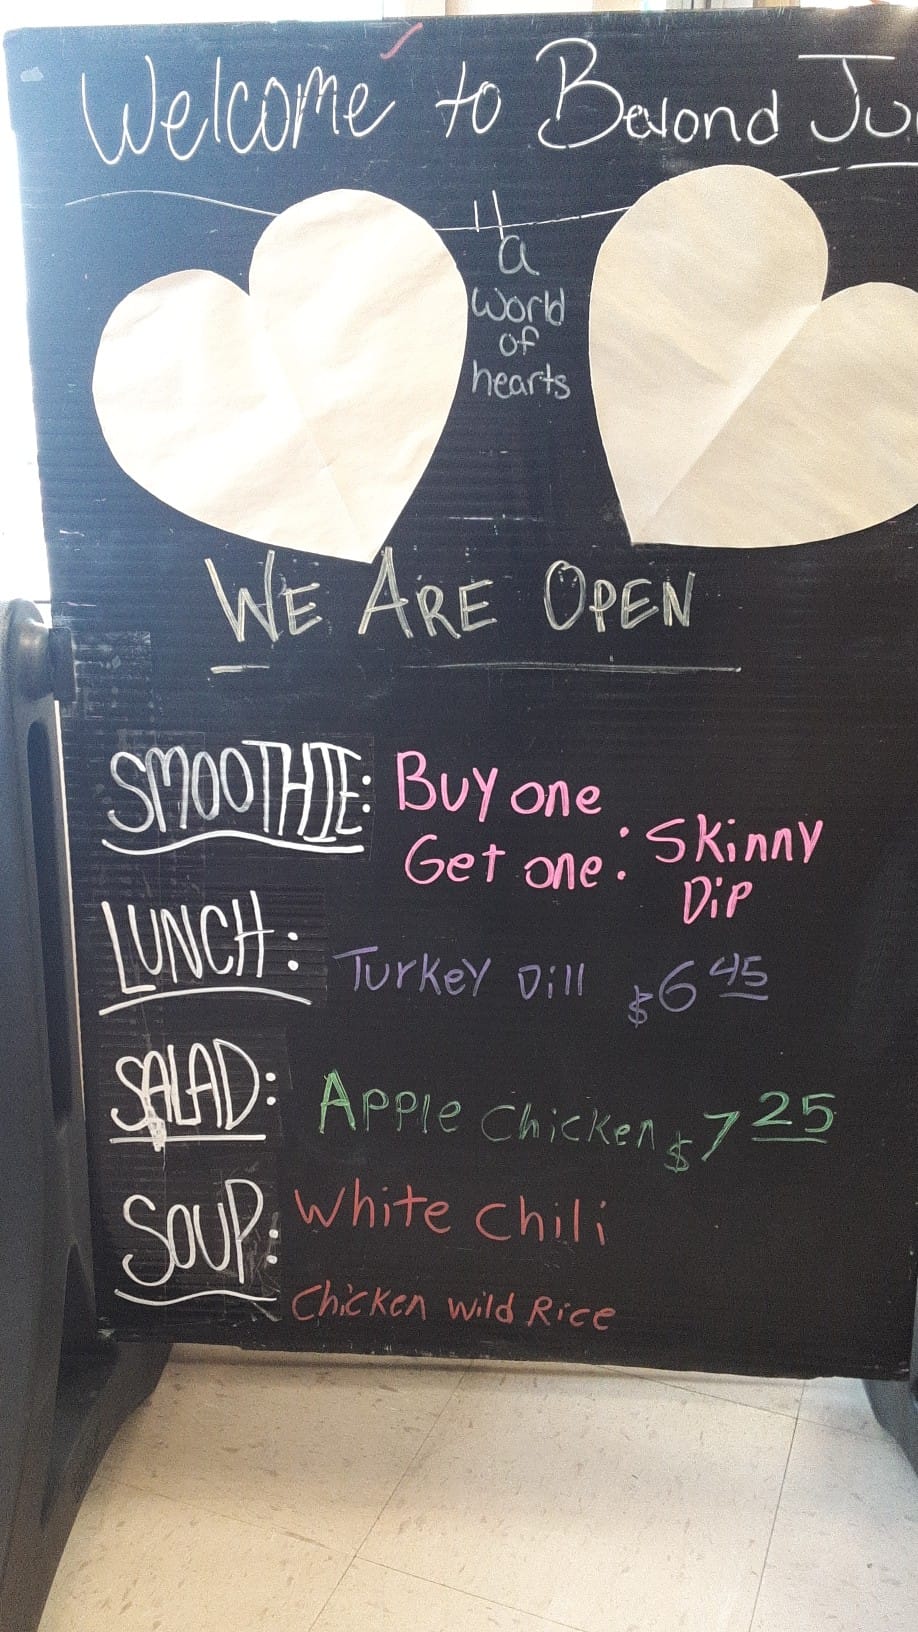 Welcome to Beyond Ju
a
world
of
hearts
WE ARE OPEN
SMOOTHIE: Buy one
Get one: Skinny
Dip
LUNCH: Turkey Dill $6 45
SALAD: Apple Chicken $7 25
SOUP: White Chili
Chicken Wild Rice